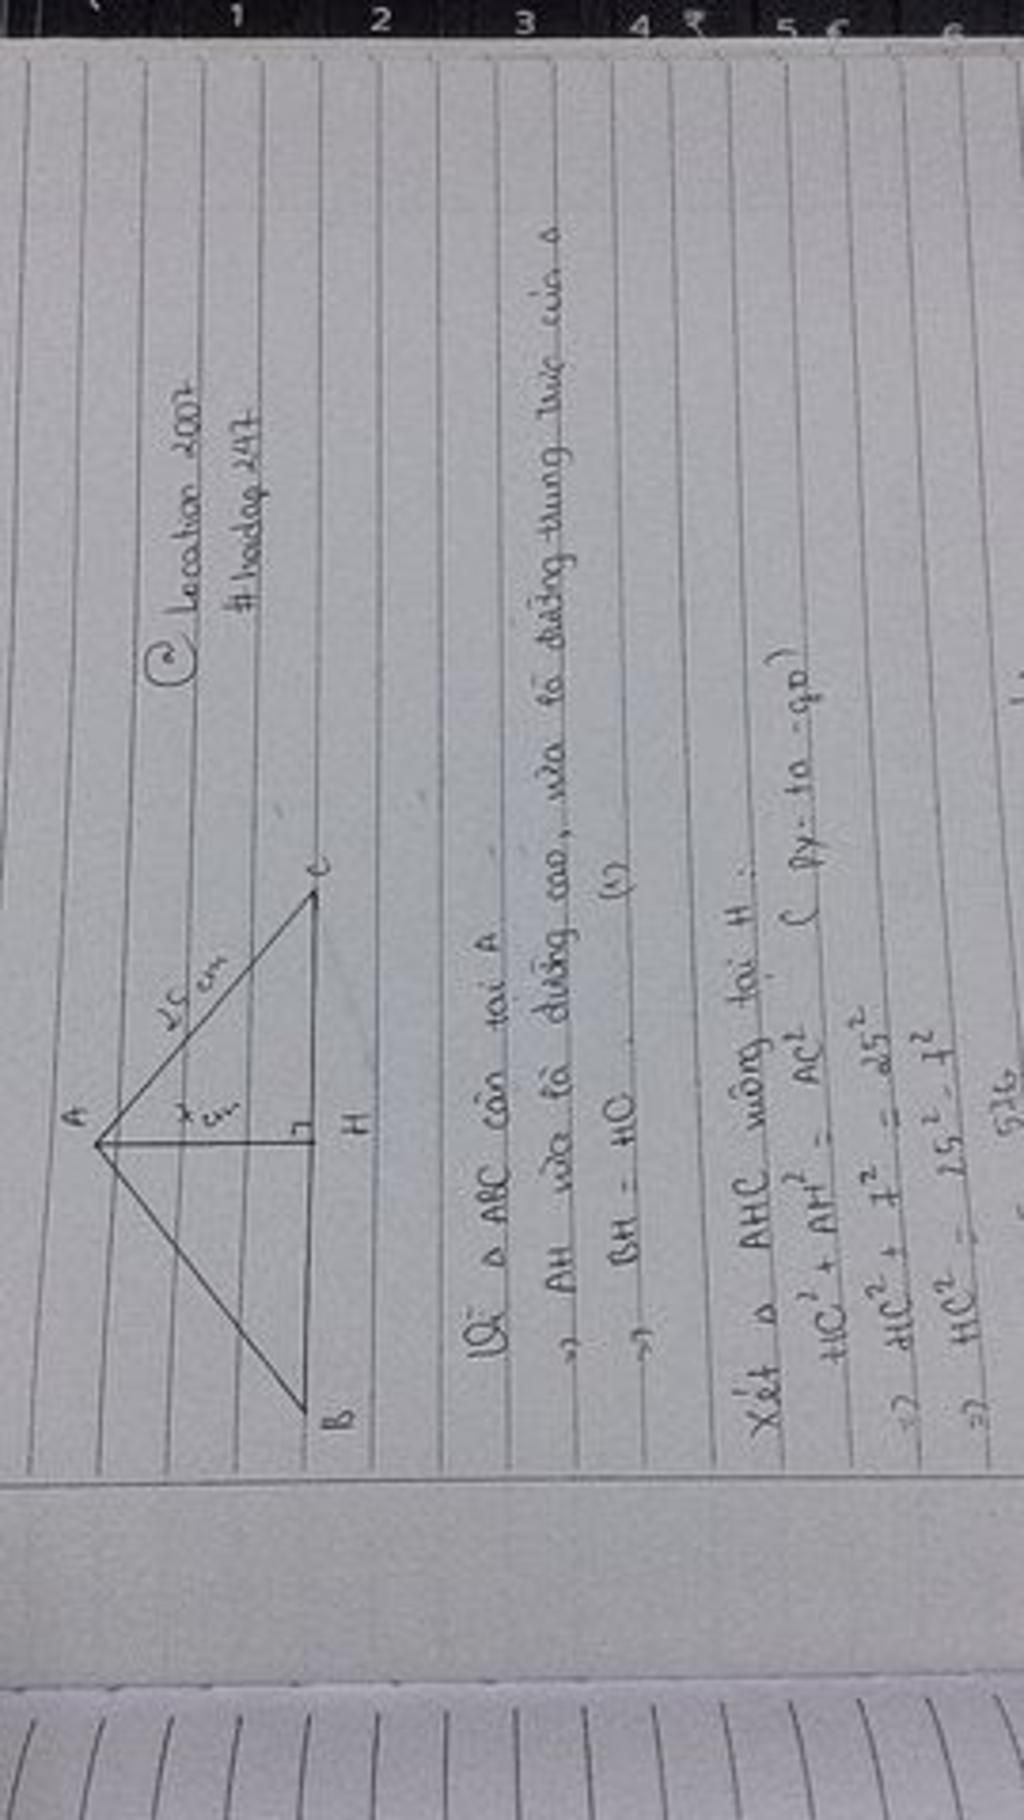 1 2 3 4 5 6
@ Location 2007
# hoidap 247
A
25 cm
7 cm
B H C
Vì Δ ABC cân tại A
=> AH vừa là đường cao, vừa là đường trung trực của Δ
=> BH = HC (1)
Xét Δ AHC vuông tại H:
HC² + AH² = AC² (Py-ta-go)
=> HC² + 7² = 25²
=> HC² = 25² - 7²
576